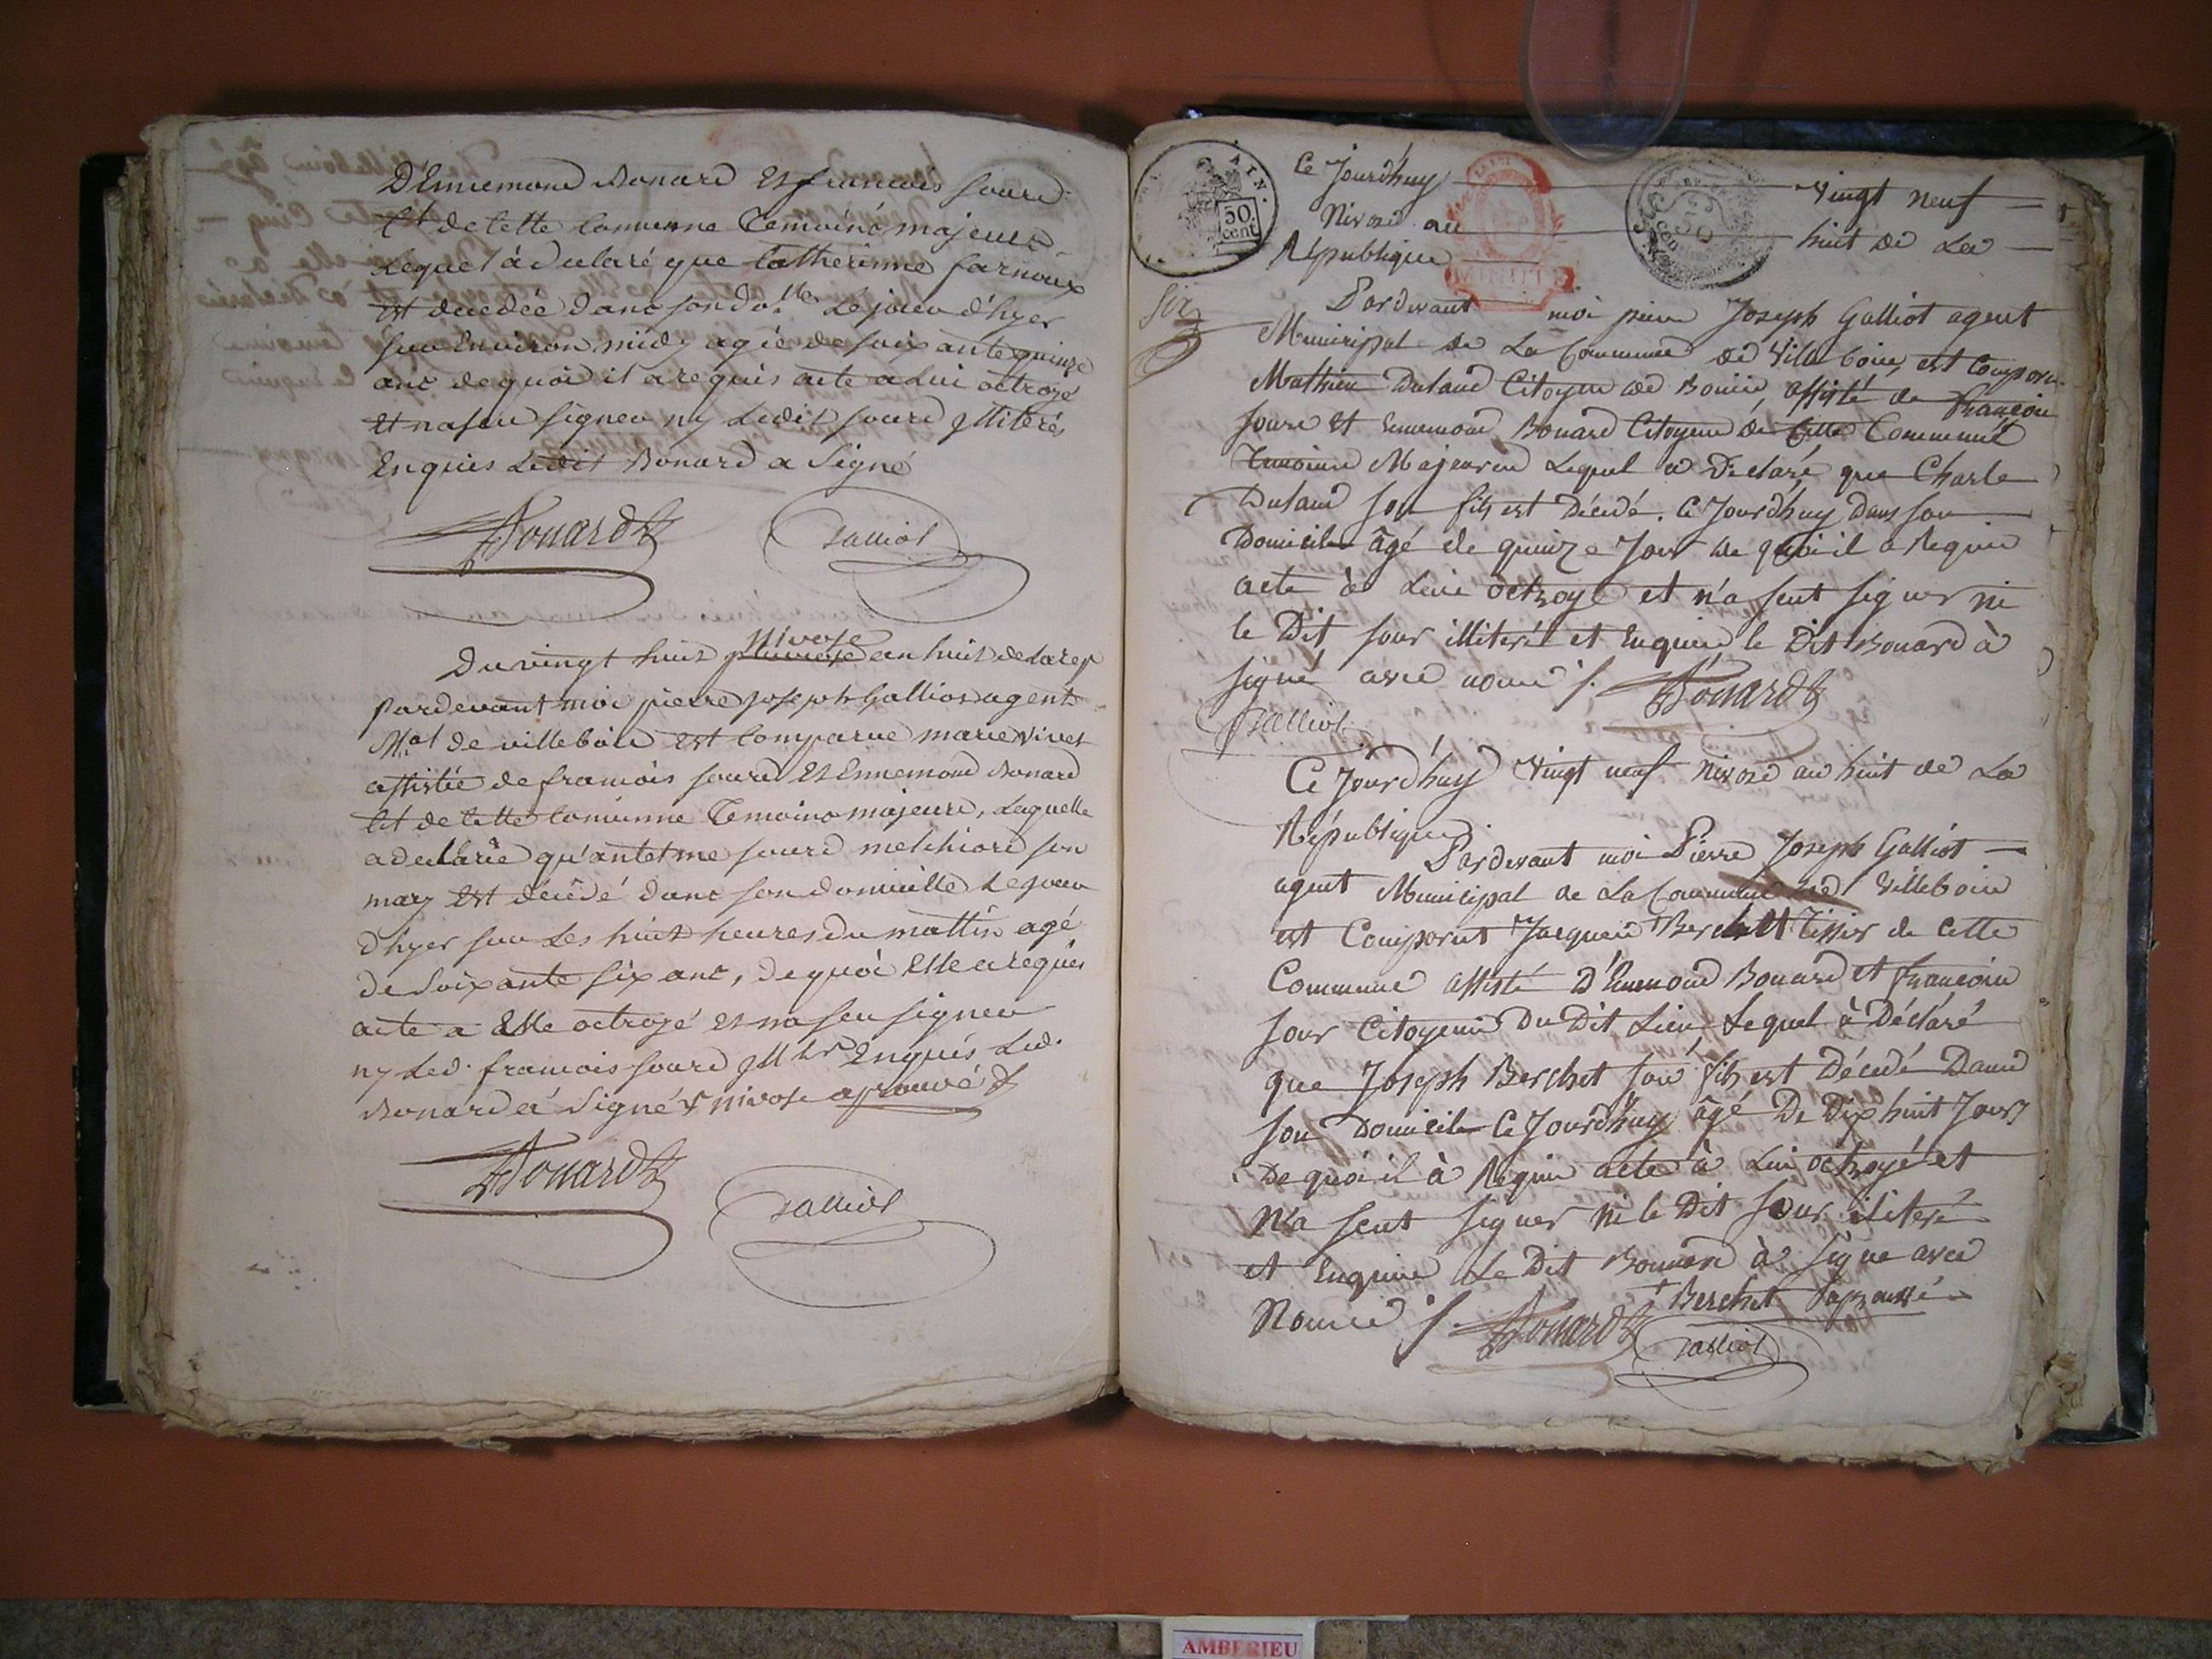 D'Ennemond Bonard Et francois sourd
Cit de Cette Commune Temoins majeurs
Lequel à declaré que Catherinne farnoux
Est decedée dans son do.lle Le jour d'hyer
sur Environ midy agée de soixante quinze
ans de quoi il a requis acte a Lui octroyé
Et na seu signer ny Ledit sourd illiterés
Enquis Ledit Bonard a Signé
Bonard
Galliot
nivose
Du vingt huit pluviose an huit de La rep
Pardevant moi pierre joseph Galliot agent
M.al de villebois Est Comparue marie vivet
assistée de francois sourd Et Ennemond Bonard
Cit de Cette Commune Temoins majeurs, Laquelle
a declarée qu'antelme sourd melchiord son
mary Est décédé dans son domicille Le jour
d'hyer sur Les huit heures du mattin agé
de Soixante six ans, de quoi Elle a requis
acte a Elle octroyé Et na seu signer
ny Led. francois sourd Enquis Led.
Bonard a Signé nivose aprouvé
Bonard
Galliot
AIN.
30
cent
Ce Jourd'huy vingt neuf
Nivose an huit de La
République
MINUTE
Six
Pardevant moi pierre Joseph Galliot agent
Municipal de La Commune de Villebois, est Comparu
Mathieu Dulaud Citoyen de Bouis, assisté de françois
sourd et Ennemond Bonard Citoyens de Cette Commune
Temoins Majeures Lequel a Déclaré que Charle
Dulaud son fils est Décédé. Ce Jourd'huy dans son
Domicile âgé de quinze Jour de quoi il a Requis
acte à Lui octroyé et n'a seut signer ni
le Dit sour illiteré et Enquis le Dit Bonard à
signé avec nous /.
Bonard
Galliot
Ce Jourd'huy Vingt neuf Nivose an huit de La
République
Pardevant moi Pierre Joseph Galliot
agent Municipal de La Commune de Villebois
est Comparut Jacques Berchet Tissier de Cette
Commune assisté D'Ennemond Bonard et françois
sour Citoyens Du Dit Lieu, Lequel à Déclaré
que Joseph Berchet son fils est Décédé Dans
son Domicile Ce Jourd'huy âgé De Dix huit Jours
De quoi il à Requis acte à Lui octroyé et
N'a seut signer ni le Dit Sour iliteré
et Enquis Le Dit Bonard à signe avec
Nous /.
Berchet aprouvé
Bonard
Galliot
AMBERIEU